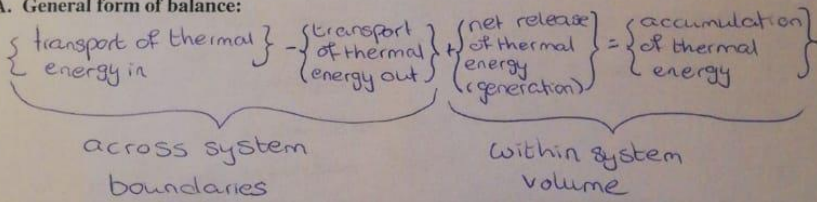 A. General form of balance:
{ transport of thermal energy in } - { transport of thermal energy out } + { net release of thermal energy (generation) } = { accumulation of thermal energy }
across system boundaries
within system volume